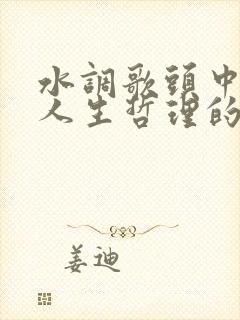 水調歌頭中
人生哲理的
姜迪